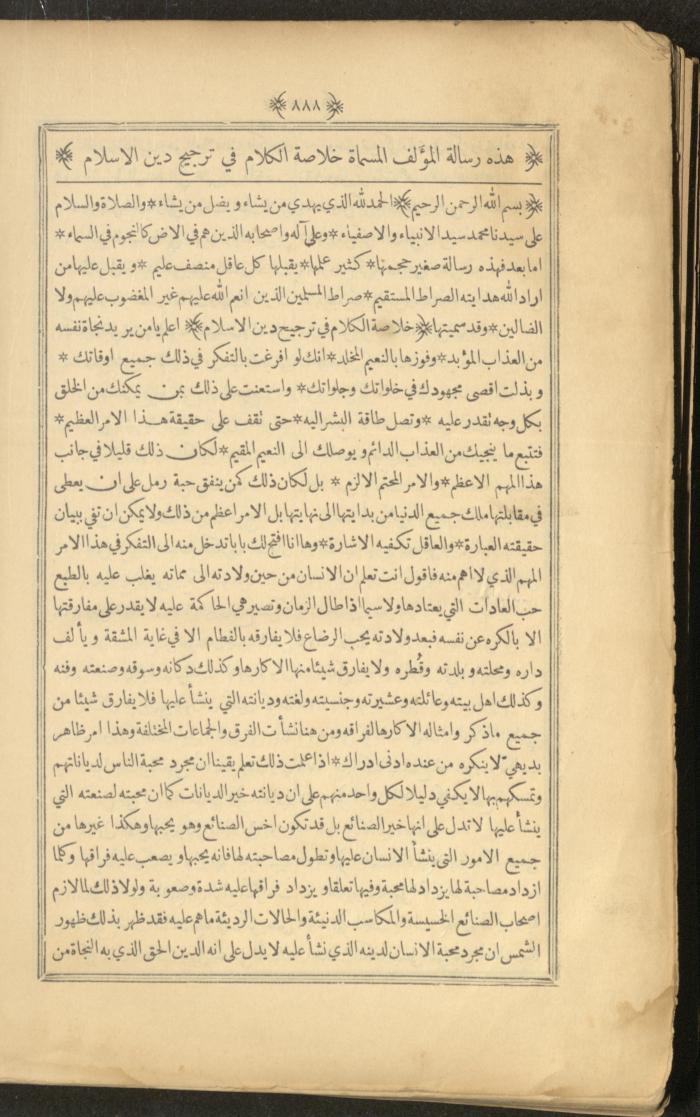 ﴿ ٨٨٨ ﴾
﴿ هذه رسالة المؤلف المسماة خلاصة الكلام في ترجيح دين الاسلام ﴾
﴿ بسم الله الرحمن الرحيم ﴾ الحمد لله الذي يهدي من يشاء ويضل من يشاء * والصلاة والسلام
على سيدنا محمد سيد الانبياء والاصفياء * وعلى آله واصحابه الذين هم في الارض كالنجوم في السماء *
اما بعد فهذه رسالة صغير حجمها * كثير علمها * يقبلها كل عاقل منصف عليم * ويقبل عليها من
اراد الله هدايته الصراط المستقيم * صراط المسلمين الذين انعم الله عليهم غير المغضوب عليهم ولا
الضالين * وقد سميتها ﴿ خلاصة الكلام في ترجيح دين الاسلام ﴾ اعلم يا من يريد نجاة نفسه
من العذاب المؤبد * وفوزها بالنعيم المخلد * انك لو افرغت بالتفكر في ذلك جميع اوقاتك *
وبذلت اقصى مجهودك في خلواتك وجلواتك * واستعنت على ذلك بمن يمكنك من الخلق
بكل وجه تقدر عليه * وتصل طاقة البشر اليه * حتى تقف على حقيقة هذا الامر العظيم *
فتتبع ما ينجيك من العذاب الدائم ويوصلك الى النعيم المقيم * لكان ذلك قليلا في جانب
هذا المهم الاعظم * والامر المحتم الالزم * بل لكان ذلك كمن ينفق حبة رمل على ان يعطى
في مقابلتها ملك جميع الدنيا من بدايتها الى نهايتها بل الامر اعظم من ذلك ولا يمكن ان تفي ببيان
حقيقته العبارة * والعاقل تكفيه الاشارة * وها انا افتح لك بابا تدخل منه الى التفكر في هذا الامر
المهم الذي لا اهم منه فاقول انت تعلم ان الانسان من حين ولادته الى مماته يغلب عليه بالطبع
حب العادات التي يعتادها ولا سيما اذا طال الزمان وتصير هي الحاكمة عليه لا يقدر على مفارقتها
الا بالكره عن نفسه فبعد ولادته يحب الرضاع فلا يفارقه بالفطام الا في غاية المشقة ويألف
داره ومحلته وبلدته وقُطره ولا يفارق شيئا منها الا كارها وكذلك دكانه وسوقه وصنعته وفنه
وكذلك اهل بيته وعائلته وعشيرته وجنسيته ولغته وديانته التي ينشأ عليها فلا يفارق شيئا من
جميع ما ذكر وامثاله الا كارها لفراقه ومن هنا نشأت الفرق والجماعات المختلفة وهذا امر ظاهر
بديهي لا ينكره من عنده ادنى ادراك * اذا علمت ذلك تعلم يقينا ان مجرد محبة الناس لدياناتهم
وتمسكهم بها لا يكفي دليلا لكل واحد منهم على ان ديانته خير الديانات كما ان محبته لصنعته التي
ينشأ عليها لا تدل على انها خير الصنائع بل قد تكون اخس الصنائع وهو يحبها وهكذا غيرها من
جميع الامور التي ينشأ الانسان عليها وتطول مصاحبته لها فانه يحبها ويصعب عليه فراقها وكلما
ازداد مصاحبة لها يزداد لها محبة وفيها تعلقا ويزداد فراقها عليه شدة وصعوبة ولولا ذلك لما لازم
اصحاب الصنائع الخسيسة والمكاسب الدنيئة والحالات الرديئة ما هم عليه فقد ظهر بذلك ظهور
الشمس ان مجرد محبة الانسان لدينه الذي نشأ عليه لا يدل على انه الدين الحق الذي به النجاة من